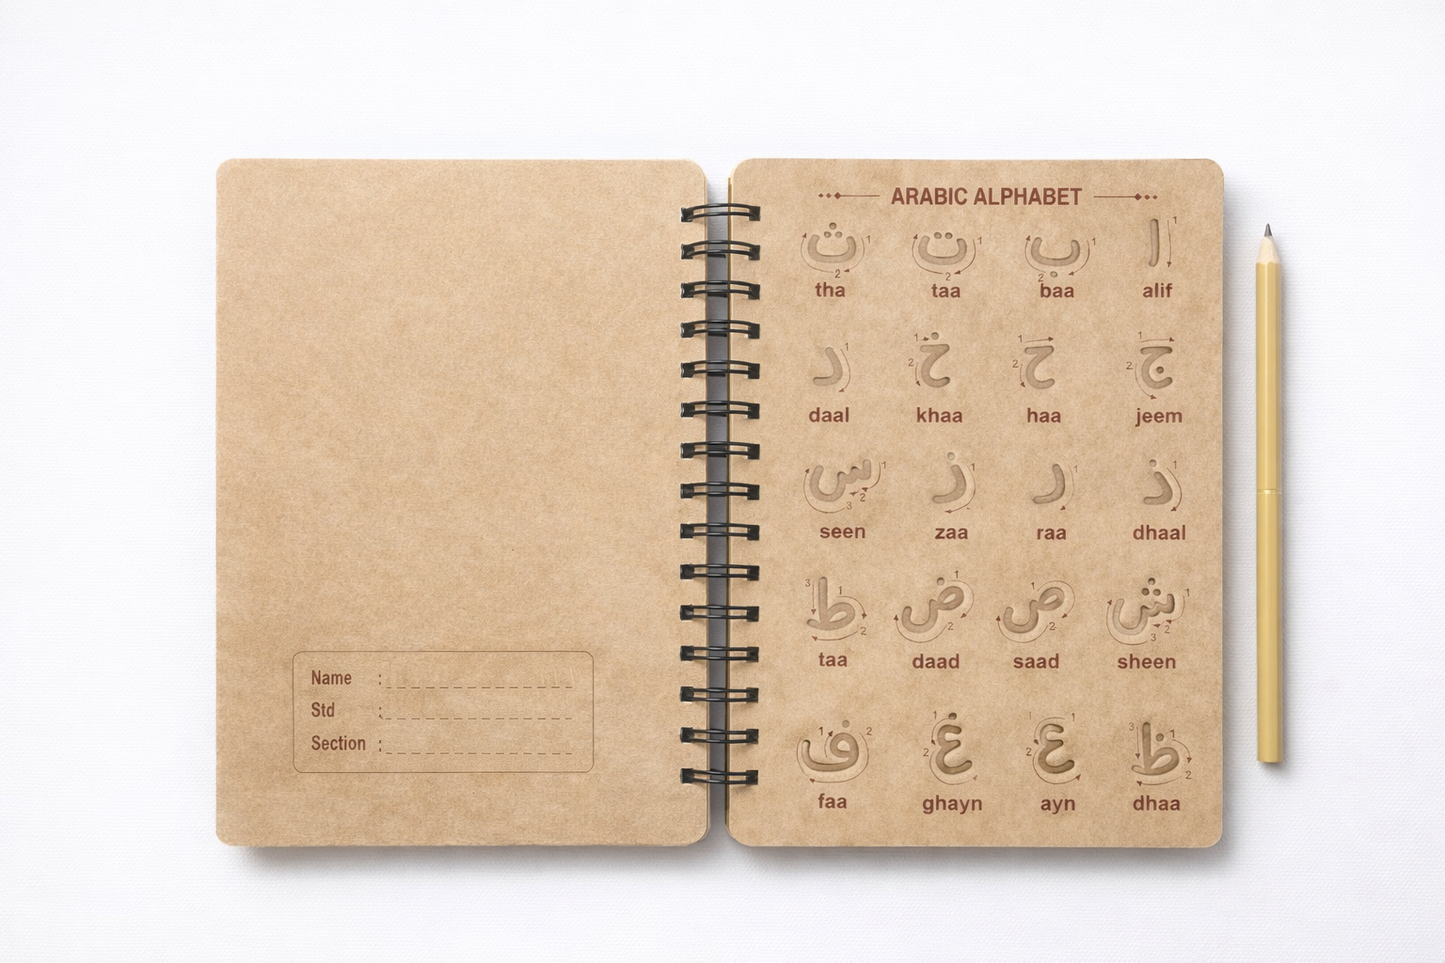 Name :
Std :
Section :
ARABIC ALPHABET
ا ب ت ث
tha taa baa alif
ج ح خ د
daal khaa haa jeem
ذ ر ز س
seen zaa raa dhaal
ش ص ض ط
taa daad saad sheen
ظ ع غ ف
faa ghayn ayn dhaa